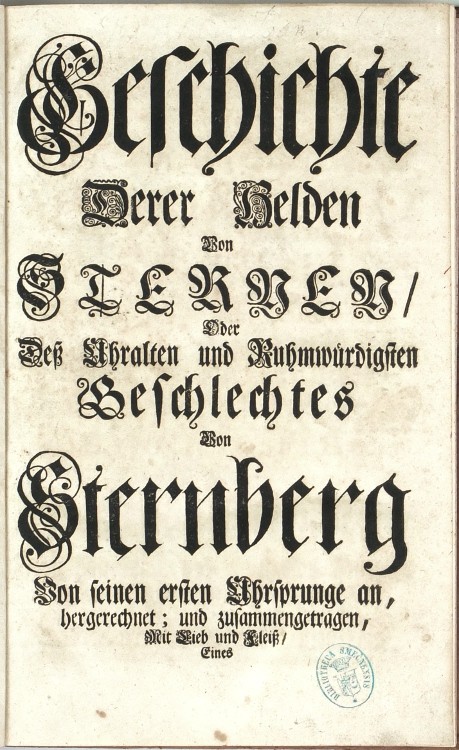 Geschichte
Derer Helden
Von
STERNEN/
Oder
Deß Uhralten und Ruhmwürdigsten
Geschlechtes
Von
Sternberg
Von seinen ersten Uhrsprunge an,
hergerechnet; und zusammengetragen,
Mit Lieb und Fleiß/
Eines
BIBLIOTHECA SMECNENSIS